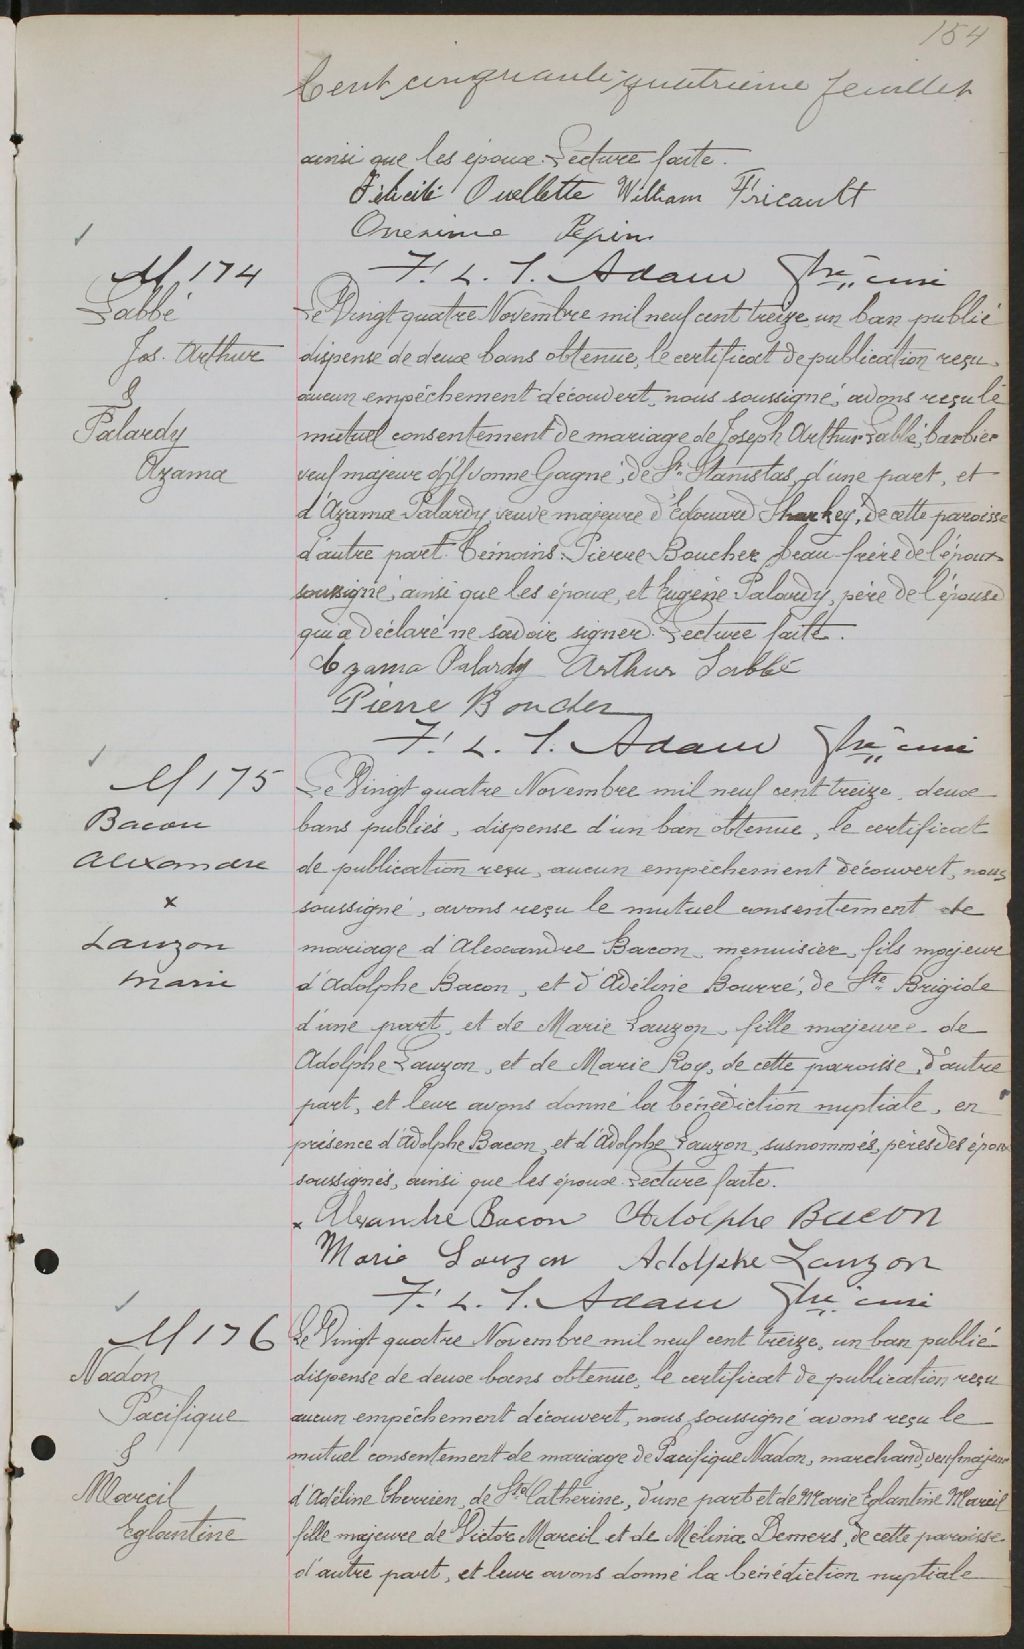 154
Cent cinquante-quatrième feuillet
ainsi que les époux. Lecture faite.
Félicité Ouellette William Fricault
Onésime Pépin
F. L. T. Adam Ptre curé
M 174
Labbé
Jos. Arthur
&
Palardy
Azama
Le Vingt quatre Novembre mil neuf cent treize, un ban publié
dispense de deux bans obtenue, le certificat de publication reçu,
aucun empêchement découvert, nous soussigné, avons reçu le
mutuel consentement de mariage de Joseph Arthur Labbé, barbier
veuf majeur d'Yvonne Gagné, de St. Stanislas, d'une part, et
d'Azama Palardy, veuve majeure d'Edouard Sharkey, de cette paroisse
d'autre part. Témoins: Pierre Boucher, beau-frère de l'époux
soussigné, ainsi que les époux, et Eugène Palardy, père de l'épouse
qui a déclaré ne savoir signer. Lecture faite.
Azama Palardy Arthur Labbé
Pierre Boucher
F. L. T. Adam Ptre curé
M 175
Bacon
Alexandre
x
Lauzon
Marie
Le Vingt quatre Novembre mil neuf cent treize, deux
bans publiés, dispense d'un ban obtenue, le certificat
de publication reçu, aucun empêchement découvert, nous
soussigné, avons reçu le mutuel consentement de
mariage d'Alexandre Bacon, menuisier, fils majeur
d'Adolphe Bacon, et d'Adéline Bourré, de Ste. Brigide
d'une part, et de Marie Lauzon, fille majeure de
Adolphe Lauzon, et de Marie Roy, de cette paroisse, d'autre
part, et leur avons donné la bénédiction nuptiale, en
présence d'Adolphe Bacon, et d'Adolphe Lauzon, susnommés, pères des époux
soussignés, ainsi que les époux. Lecture faite.
x Alexandre Bacon Adolphe Bacon
Marie Lauzon Adolphe Lauzon
F. L. T. Adam Ptre curé
M 176
Nadon
Pacifique
&
Mareil
Eglantine
Le Vingt quatre Novembre mil neuf cent treize, un ban publié
dispense de deux bans obtenue, le certificat de publication reçu
aucun empêchement découvert, nous soussigné avons reçu le
mutuel consentement de mariage de Pacifique Nadon, marchand, veuf majeur
d'Adéline Therrien, de Ste Catherine, d'une part et de Marie Eglantine Mareil
fille majeure de Victor Mareil et de Mélina Demers, de cette paroisse
d'autre part, et leur avons donné la bénédiction nuptiale